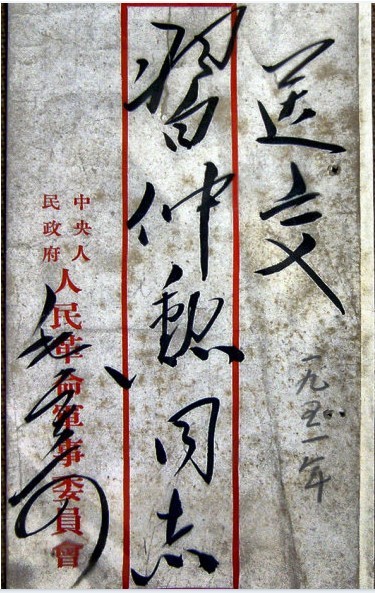 送交
一九五一年
習仲勲同志
中央人
民政府
人民革命軍事委員會